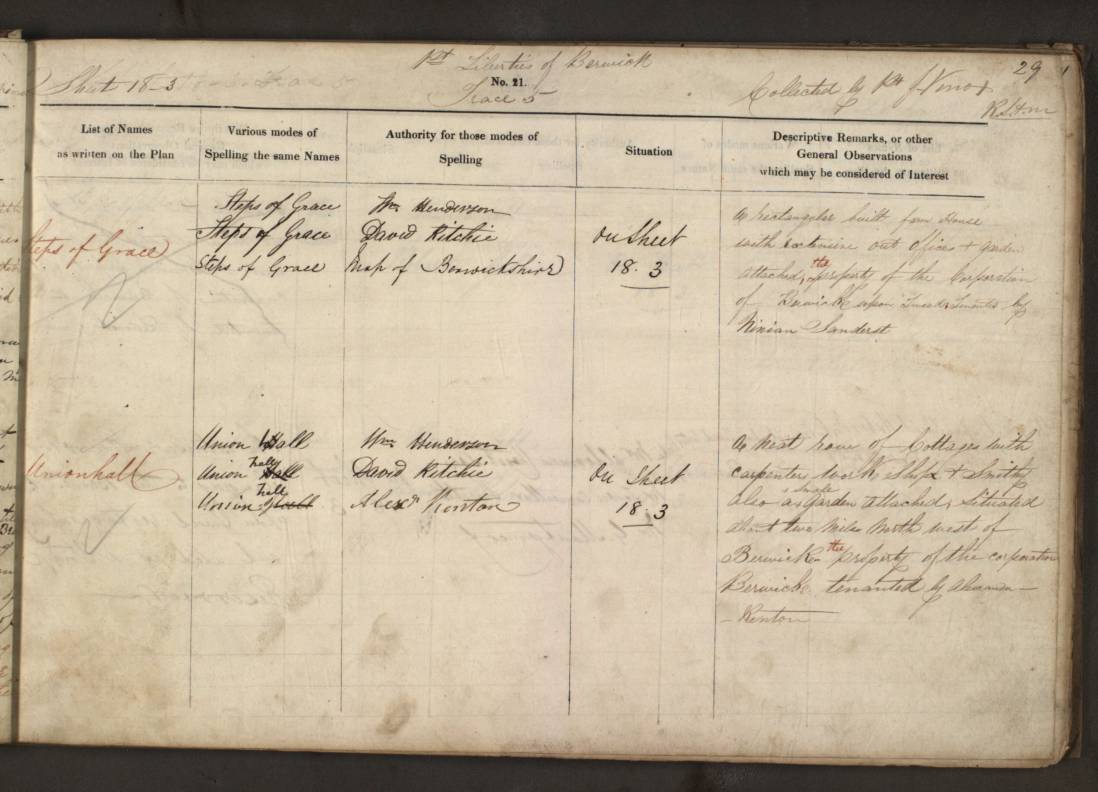 Pt Liberties of Berwick
29
Sheet 18-3
No. 21.
Trace 5
Collected by Pte J. Nimo
List of Names
as written on the Plan
Various modes of
Spelling the same Names
Authority for those modes of
Spelling
Situation
Descriptive Remarks, or other
General Observations
which may be considered of Interest
Steps of Grace
Steps of Grace
Steps of Grace
Steps of Grace
Wm Henderson
David Ritchie
Map of Berwickshire
On Sheet
18.3
A rectangular built farm House
with extensive out offices & garden
attached, the property of the Corporation
of Berwick upon Tweed, Tenanted by
Ninian
Unionhall
Union Hall
Union hall
Union hall
Wm Henderson
David Ritchie
Alexr Renton
On Sheet
18.3
A neat row of Cottages with
carpenters work Shop & Smithy
Also a Garden attached, Situated
about two Miles North west of
Berwick the property of the corporation
Berwick tenanted by Alexander
Renton